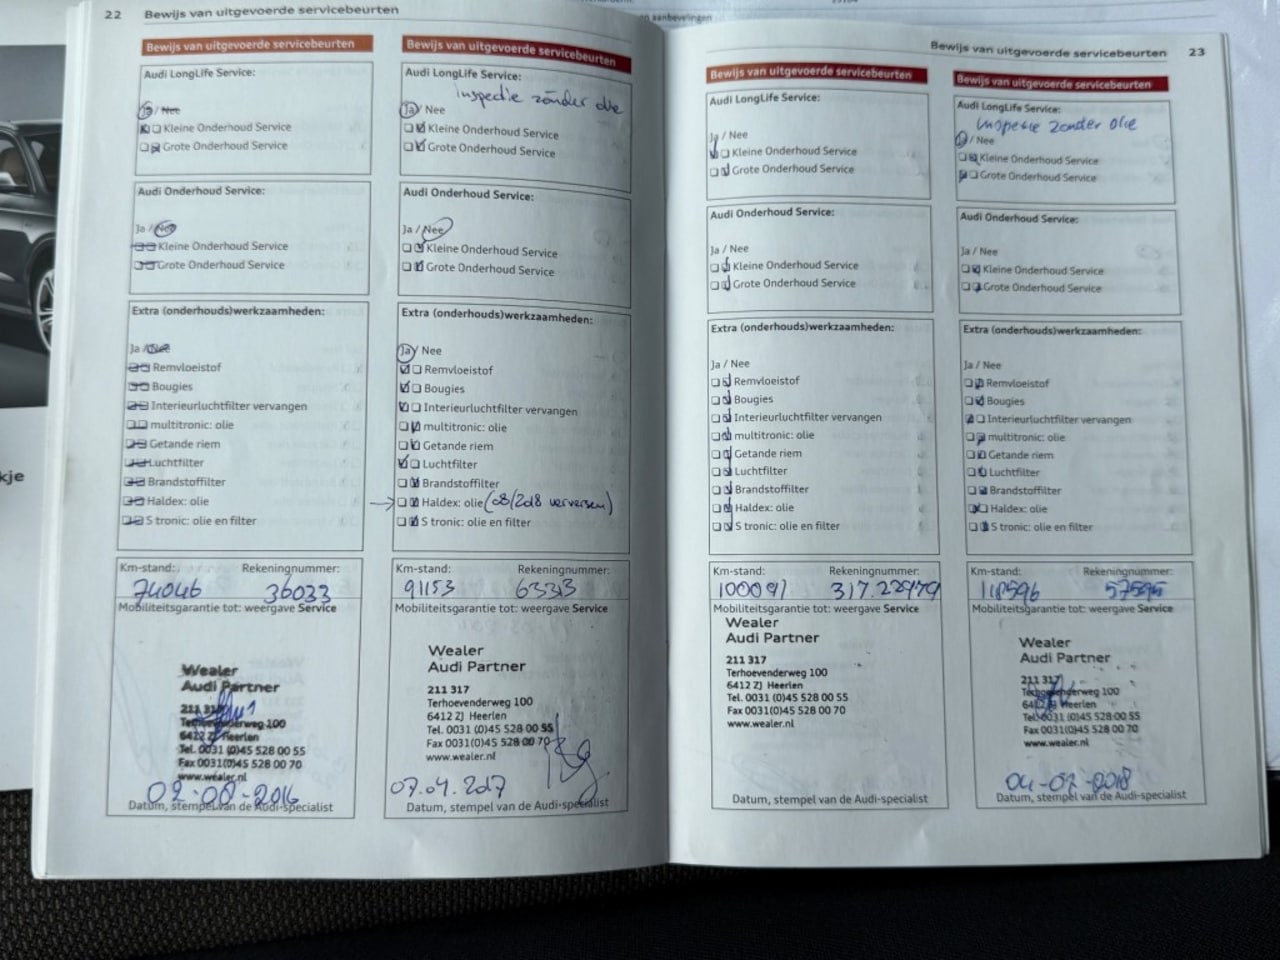 22 Bewijs van uitgevoerde servicebeurten
Bewijs van uitgevoerde servicebeurten
Audi LongLife Service:
Ja / Nee
Kleine Onderhoud Service
Grote Onderhoud Service
Audi Onderhoud Service:
Ja / Nee
Kleine Onderhoud Service
Grote Onderhoud Service
Extra (onderhouds)werkzaamheden:
Ja / Nee
Remvloeistof
Bougies
Interieurluchtfilter vervangen
multitronic: olie
Getande riem
Luchtfilter
Brandstoffilter
Haldex: olie
S tronic: olie en filter
Km-stand: Rekeningnummer:
74046 36033
Mobiliteitsgarantie tot: weergave Service
Wealer
Audi Partner
211 317
Terhoevenderweg 100
6422 ZJ Heerlen
Tel. 0031 (0)45 528 00 55
Fax 0031(0)45 528 00 70
www.wealer.nl
02-08-2016
Datum, stempel van de Audi-specialist
Bewijs van uitgevoerde servicebeurten
Audi LongLife Service:
inspectie zonder olie
Ja / Nee
Kleine Onderhoud Service
Grote Onderhoud Service
Audi Onderhoud Service:
Ja / Nee
Kleine Onderhoud Service
Grote Onderhoud Service
Extra (onderhouds)werkzaamheden:
Ja / Nee
Remvloeistof
Bougies
Interieurluchtfilter vervangen
multitronic: olie
Getande riem
Luchtfilter
Brandstoffilter
Haldex: olie (08/2018 verversen)
S tronic: olie en filter
Km-stand: Rekeningnummer:
91153 63313
Mobiliteitsgarantie tot: weergave Service
Wealer
Audi Partner
211 317
Terhoevenderweg 100
6412 ZJ Heerlen
Tel. 0031 (0)45 528 00 55
Fax 0031(0)45 528 00 70
www.wealer.nl
07.04.2017
Datum, stempel van de Audi-specialist
Bewijs van uitgevoerde servicebeurten 23
Bewijs van uitgevoerde servicebeurten
Audi LongLife Service:
Ja / Nee
Kleine Onderhoud Service
Grote Onderhoud Service
Audi Onderhoud Service:
Ja / Nee
Kleine Onderhoud Service
Grote Onderhoud Service
Extra (onderhouds)werkzaamheden:
Ja / Nee
Remvloeistof
Bougies
Interieurluchtfilter vervangen
multitronic: olie
Getande riem
Luchtfilter
Brandstoffilter
Haldex: olie
S tronic: olie en filter
Km-stand: Rekeningnummer:
100091 317.22979
Mobiliteitsgarantie tot: weergave Service
Wealer
Audi Partner
211 317
Terhoevenderweg 100
6412 ZJ Heerlen
Tel. 0031 (0)45 528 00 55
Fax 0031(0)45 528 00 70
www.wealer.nl
Datum, stempel van de Audi-specialist
Bewijs van uitgevoerde servicebeurten
Audi LongLife Service:
inspectie zonder olie
Ja / Nee
Kleine Onderhoud Service
Grote Onderhoud Service
Audi Onderhoud Service:
Ja / Nee
Kleine Onderhoud Service
Grote Onderhoud Service
Extra (onderhouds)werkzaamheden:
Ja / Nee
Remvloeistof
Bougies
Interieurluchtfilter vervangen
multitronic: olie
Getande riem
Luchtfilter
Brandstoffilter
Haldex: olie
S tronic: olie en filter
Km-stand: Rekeningnummer:
118596
Mobiliteitsgarantie tot: weergave Service
Wealer
Audi Partner
211 317
Terhoevenderweg 100
6412 ZJ Heerlen
Tel. 0031 (0)45 528 00 55
Fax 0031(0)45 528 00 70
www.wealer.nl
04-07-2018
Datum, stempel van de Audi-specialist
kje
aanbevelingen